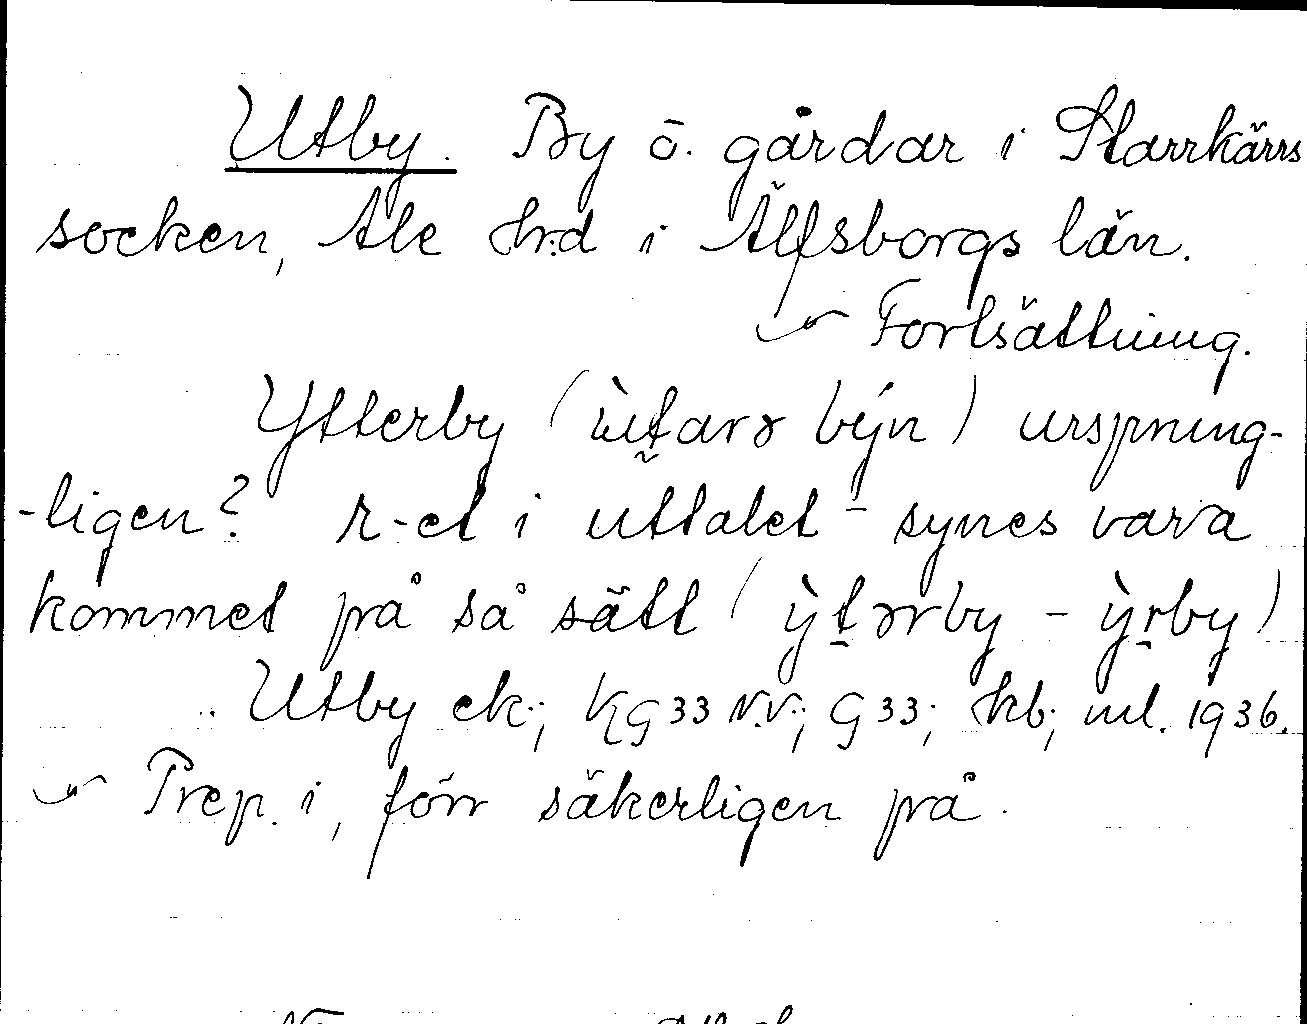 Utby. By o. gårdar i Starrkärrs
socken, Ale hrd i Älfsborgs län.
Fortsättning.
Ytterby (ùtarə býn) urspning-
-ligen? r-et i uttalet - synes vara
kommet på så sätt (ỳtərby - ỳrby)
Utby ek.; Kg 33 N.V.; G 33; hb; ml. 1936.
Prep. i, förr säkerligen på.